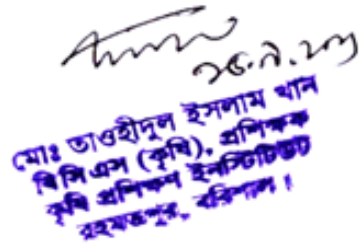 মোঃ তাওহীদুল ইসলাম খান
বিসিএস (কৃষি), প্রশিক্ষক
কৃষি প্রশিক্ষণ ইনস্টিটিউট
রহমতপুর, বরিশাল।